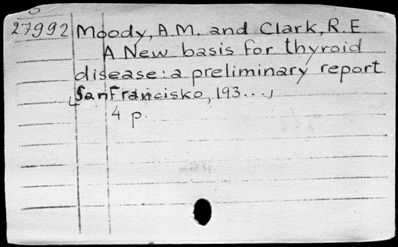 27992 Moody, A.M. and Clark, R.E
A New basis for thyroid
disease: a preliminary report
SanFrancisko, 193...,
4 p.